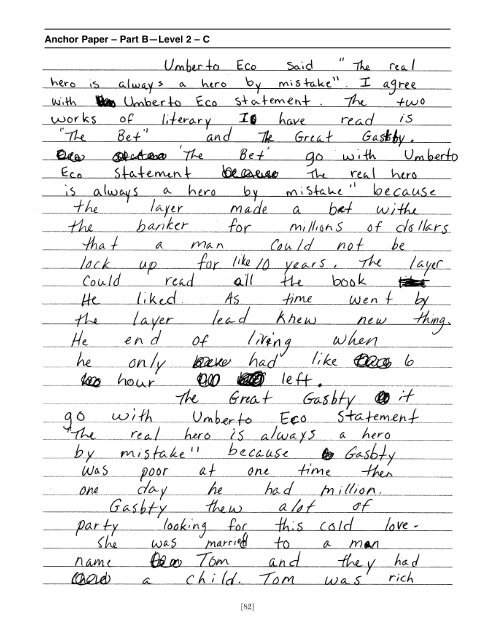 Anchor Paper – Part B—Level 2 – C
Umberto Eco said "The real
hero is always a hero by mistake". I agree
with Umberto Eco statement. The two
works of literary I have read is
"The Bet" and The Great Gastby.
"The Bet" go with Umberto
Eco statement The real hero
is always a hero by mistake" because
the layer made a bet withe
the banker for millions of dollars
that a man could not be
lock up for like 10 years. The layer
could read all the book
He liked. As time went by
the layer lead knew new thing.
He end of living when
he only had like 6
hour left.
The Great Gasbty it
go with Umberto Eco statement
"The real hero is always a hero
by mistake" because Gasbty
was poor at one time then
one day he had million.
Gasbty thew alot of
party looking for this cold love.
She was married to a man
name Tom and they had
a child. Tom was rich
[82]